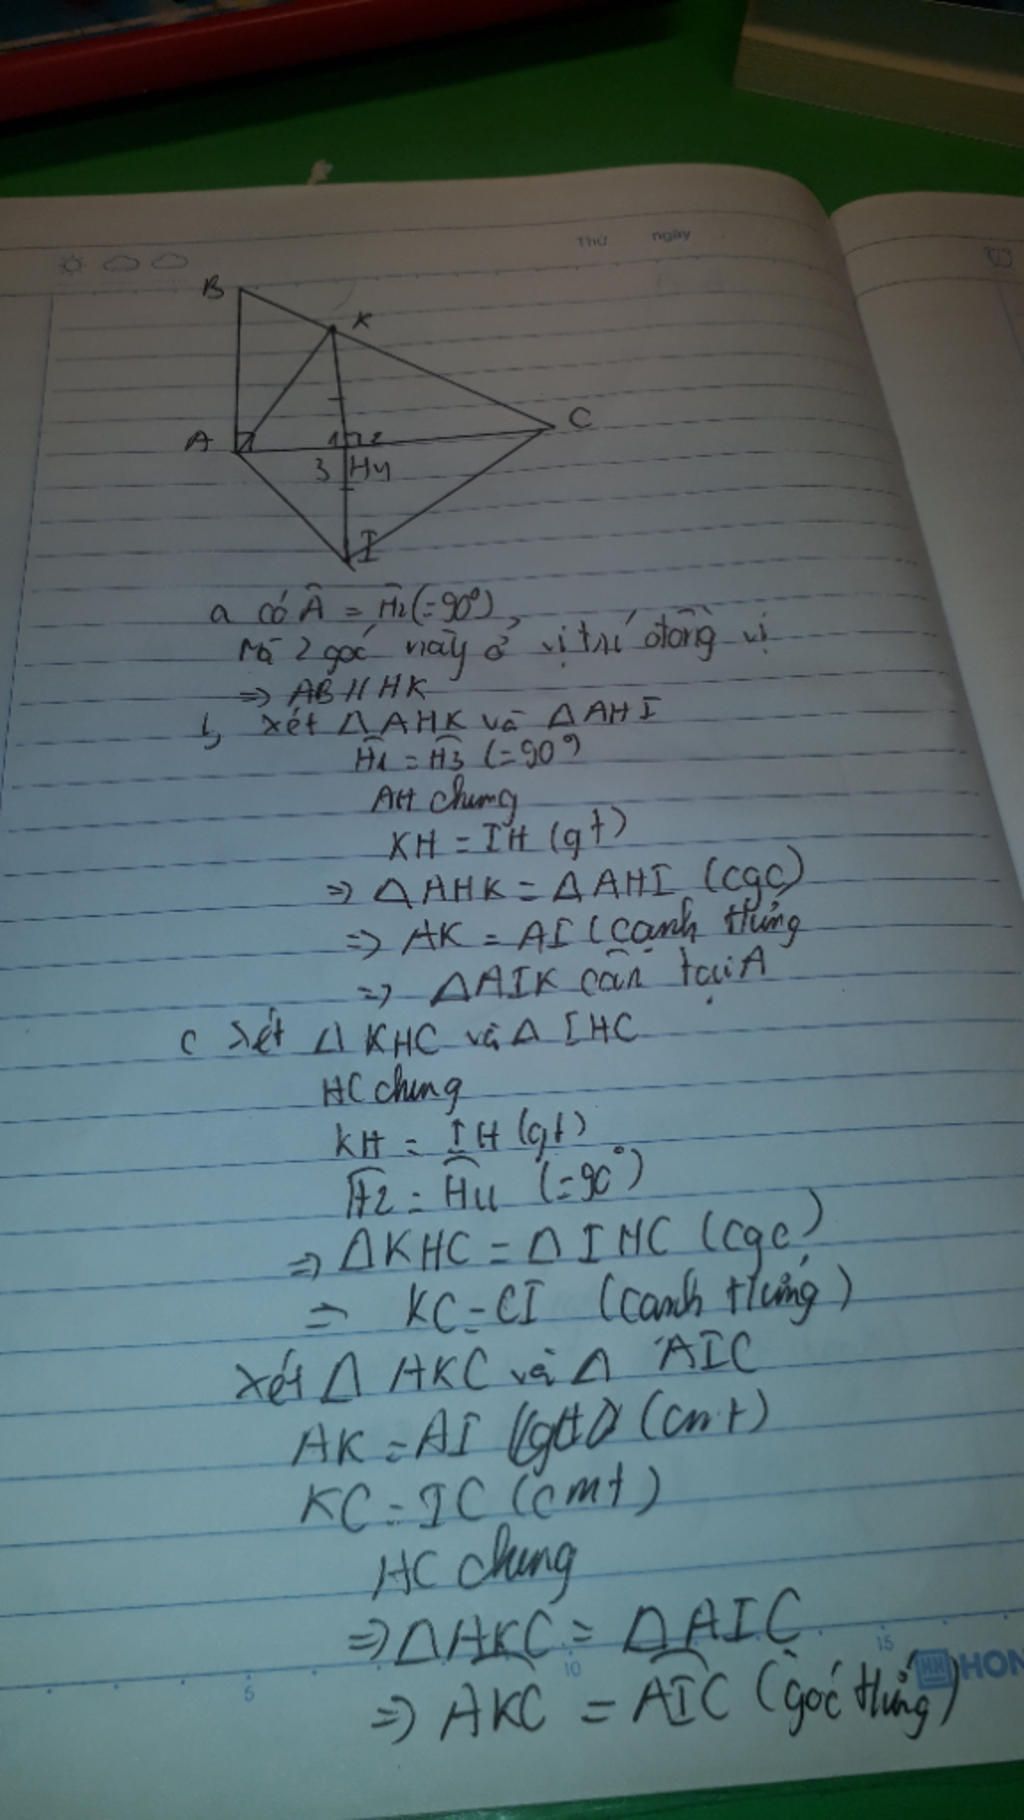 Thứ ngày
B
K
C
A
1 2
3 H 4
I
a có Â = Ĥ2 (=90°),
Mà 2 góc này ở vị trí đồng vị
=> AB // HK
b, xét Δ AHK và Δ AHI
Ĥ1 = Ĥ3 (=90°)
AH chung
KH = IH (gt)
=> Δ AHK = Δ AHI (cgc)
=> AK = AI (cạnh tứng
=> Δ AIK cân tại A
c xét Δ KHC và Δ IHC
HC chung
KH = IH (gt)
Ĥ2 = Ĥ4 (=90°)
=> Δ KHC = Δ IHC (cgc)
=> KC = CI (cạnh tứng)
xét Δ AKC và Δ AIC
AK = AI (cmt)
KC = IC (cmt)
AC chung
=> Δ AKC = Δ AIC
=> AKC = AIC (góc tứng)
5 10 15 HON